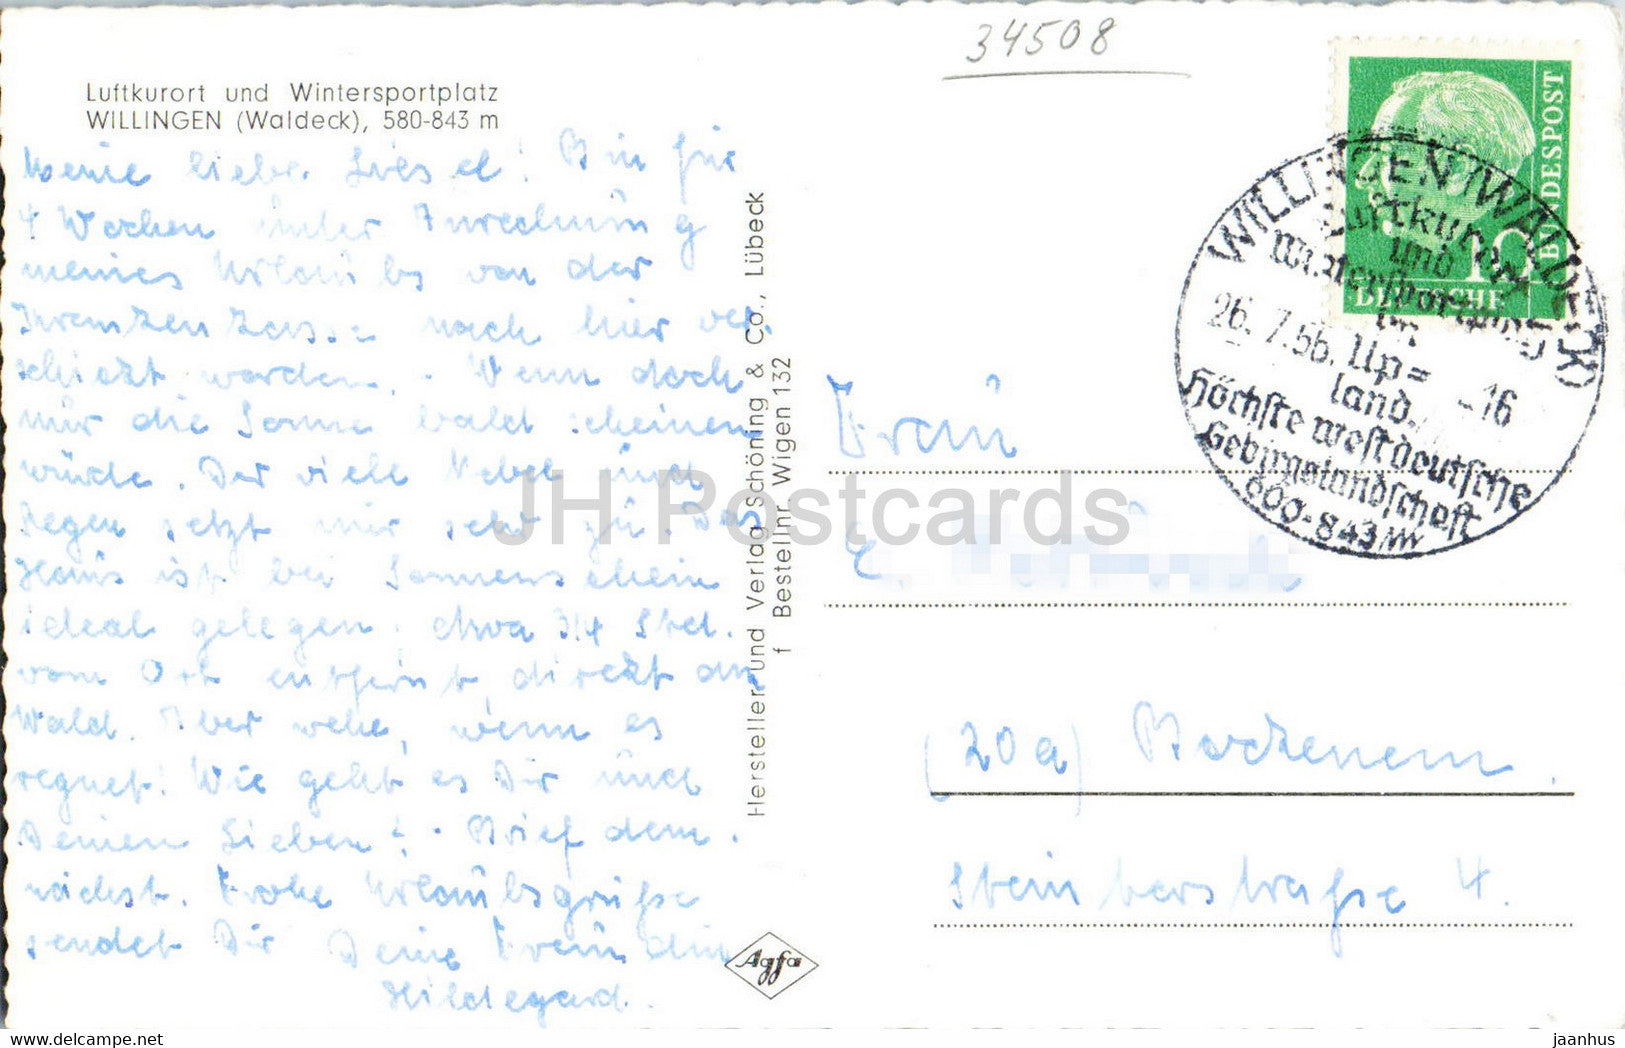 34508
Luftkurort und Wintersportplatz
WILLINGEN (Waldeck), 580-843 m
Meine liebe Liesel! Bin für
4 Wochen unter Anrechnung
meines Urlaubs von der
Krankenkasse nach hier ver-
schickt worden. - Wenn doch
nur die Sonne bald scheinen
würde. Der viele Nebel und
Regen setzt mir sehr zu. Das
Haus ist bei Sonnenschein
ideal gelegen, etwa 3/4 Std.
vom Ort entfernt, direkt am
Wald. Aber wehe, wenn es
regnet! Wie geht es Dir und
Deinen Lieben? - Brief dem-
nächst. Frohe Urlaubsgrüße
sendet Dir Deine Freundin
Hildegard.
Hersteller und Verlag Schöning & Co., Lübeck
f Bestellnr. Wigen 132
Agfa
DEUTSCHE
BUNDESPOST
10
WILLINGEN (WALDECK)
Luftkurort
und
Wintersportplatz
im
26.7.56. Up= -16
land.
Höchste westdeutsche
Gebirgslandschaft
600-843 m
Frau
E.
(20a) Bockenem.
Steinberstraße 4.
JH Postcards
www.delcampe.net
jaanhus